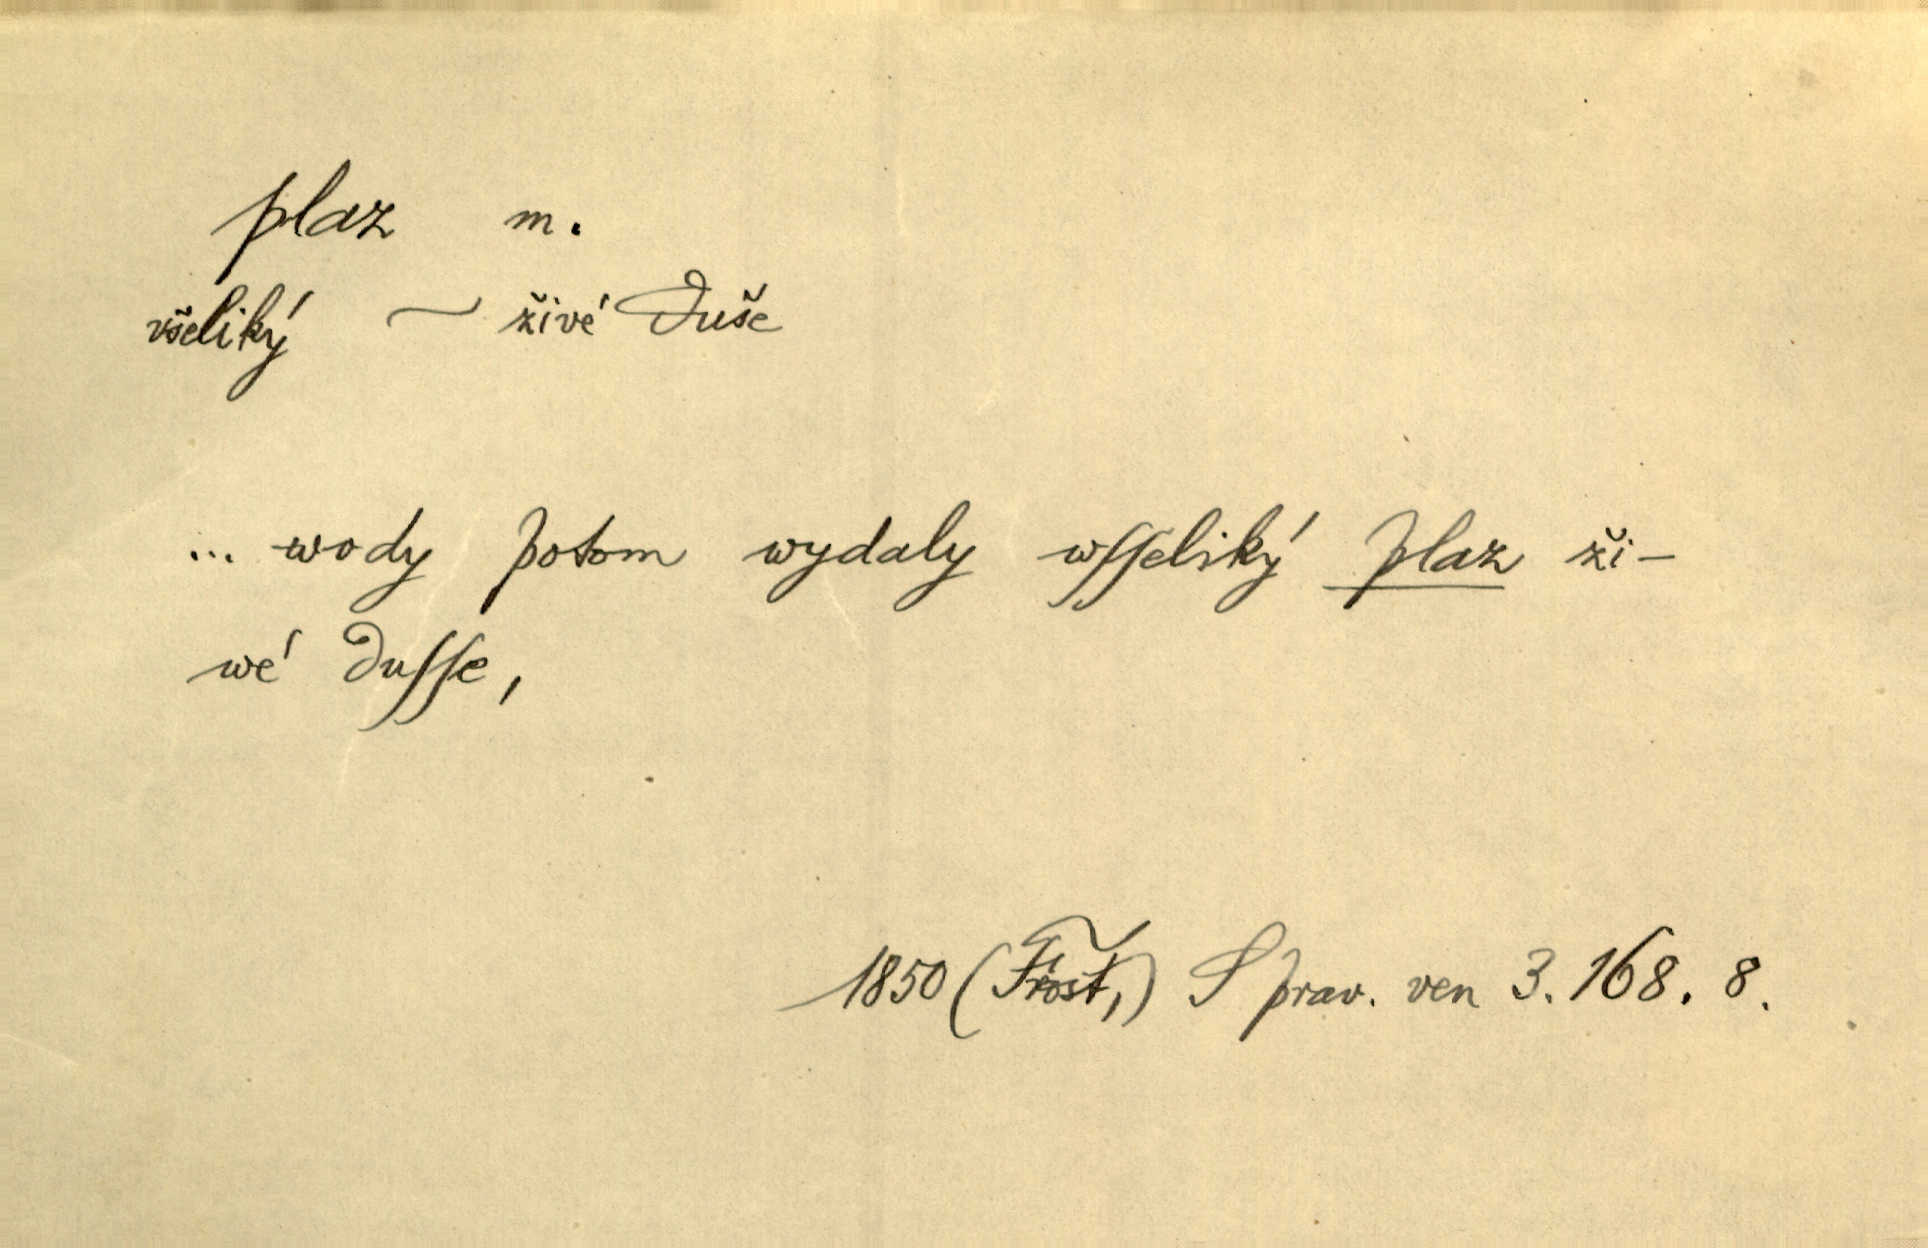 plaz m.
všeliký ~ živé duše
... wody potom wydaly wſſeliký plaz ži-
wé duſſe,
1850 (Frošt,) Sprav. ven 3. 168. 8.